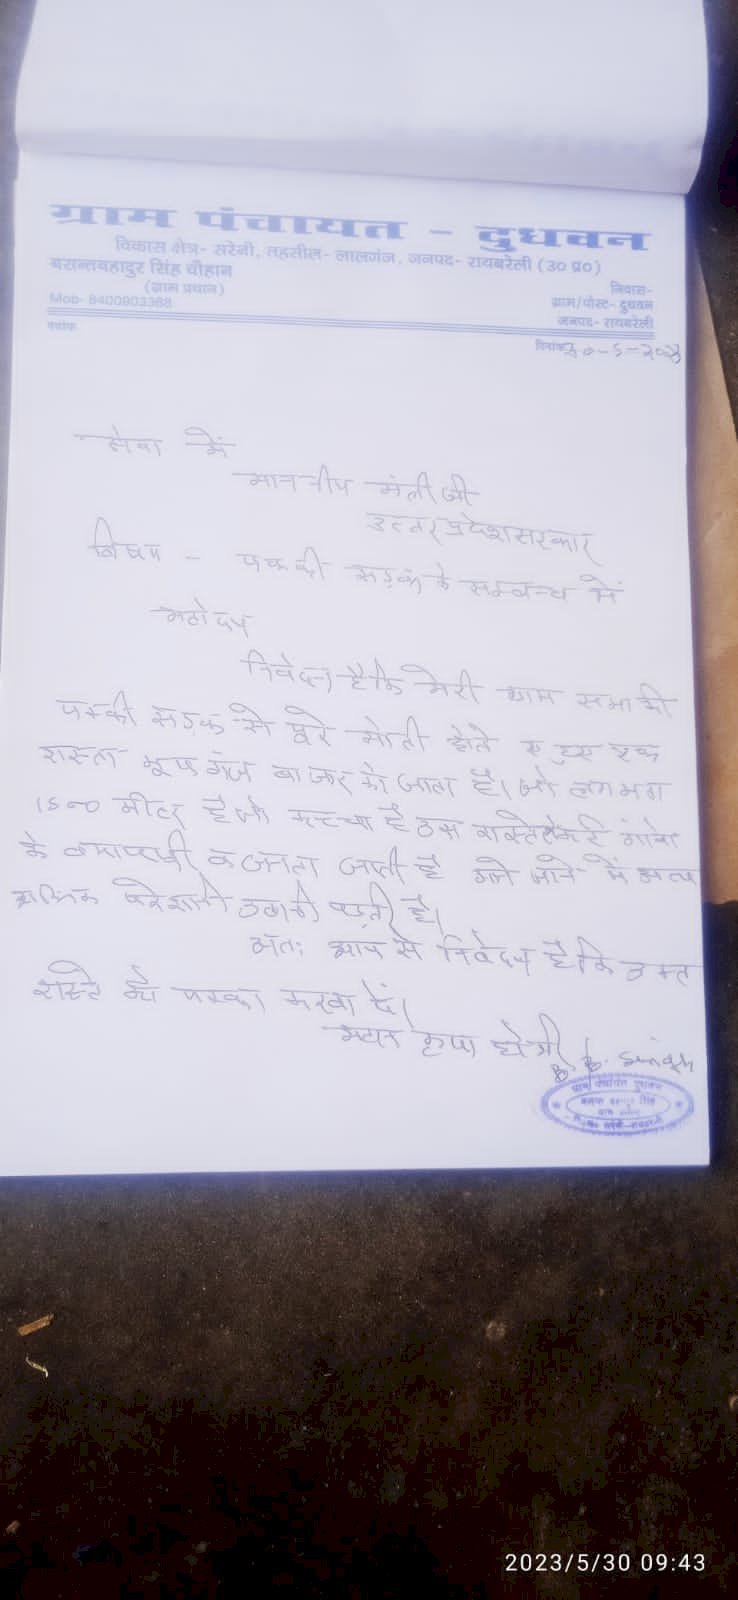 ग्राम पंचायत - दुधवन
विकास क्षेत्र- सरेनी, तहसील- लालगंज, जनपद- रायबरेली (उ0 प्र0)
बसन्तबहादुर सिंह चौहान
(ग्राम प्रधान)
Mob- 8400903388
निवास-
ग्राम/पोस्ट- दुधवन
जनपद- रायबरेली
पत्रांक
दिनांक 30-5-2023
सेवा में
माननीय मंत्री जी
उत्तर प्रदेश सरकार
विषय - पक्की सड़क के सम्बन्ध में
महोदय
निवेदन है कि मेरी ग्राम सभा की
पक्की सड़क से पूरे मोती होते हुए एक
रास्ता गंज बाजार को जाता है। जो लगभग
1500 मीटर है जो कच्चा है उस रास्ते से कई गांवो
के व्यापारी व जनता जाती है आने जाने में अत्य
धिक परेशानी उठानी पड़ती है।
अतः आप से निवेदन है कि उक्त
रास्ते को पक्का करवा दें।
महान कृपा होगी
B. B. Singh
ग्राम पंचायत दुधवन
बसन्त बहादुर सिंह
ग्राम प्रधान
2023/5/30 09:43